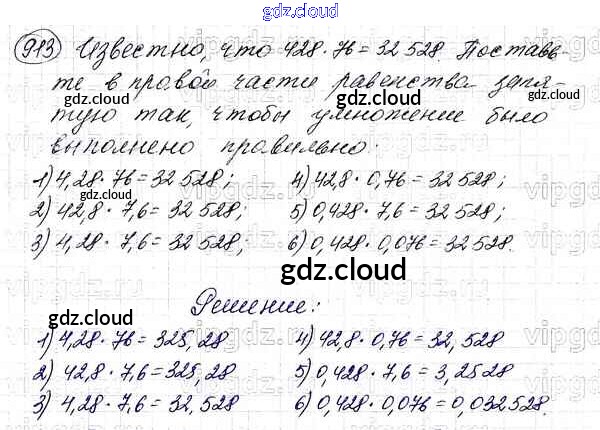 gdz.cloud
913 Известно, что 428 · 76 = 32 528. Поставь-
те в правой части равенства запя-
тую так, чтобы умножение было
выполнено правильно:
1) 4,28 · 76 = 32 528; 4) 42,8 · 0,76 = 32 528;
2) 42,8 · 7,6 = 32 528; 5) 0,428 · 7,6 = 32 528;
3) 4,28 · 7,6 = 32 528; 6) 0,428 · 0,076 = 32 528.
gdz.cloud
Решение:
1) 4,28 · 76 = 325,28 4) 42,8 · 0,76 = 32,528
2) 42,8 · 7,6 = 325,28 5) 0,428 · 7,6 = 3,2528
3) 4,28 · 7,6 = 32,528 6) 0,428 · 0,076 = 0,032528.
gdz.cloud